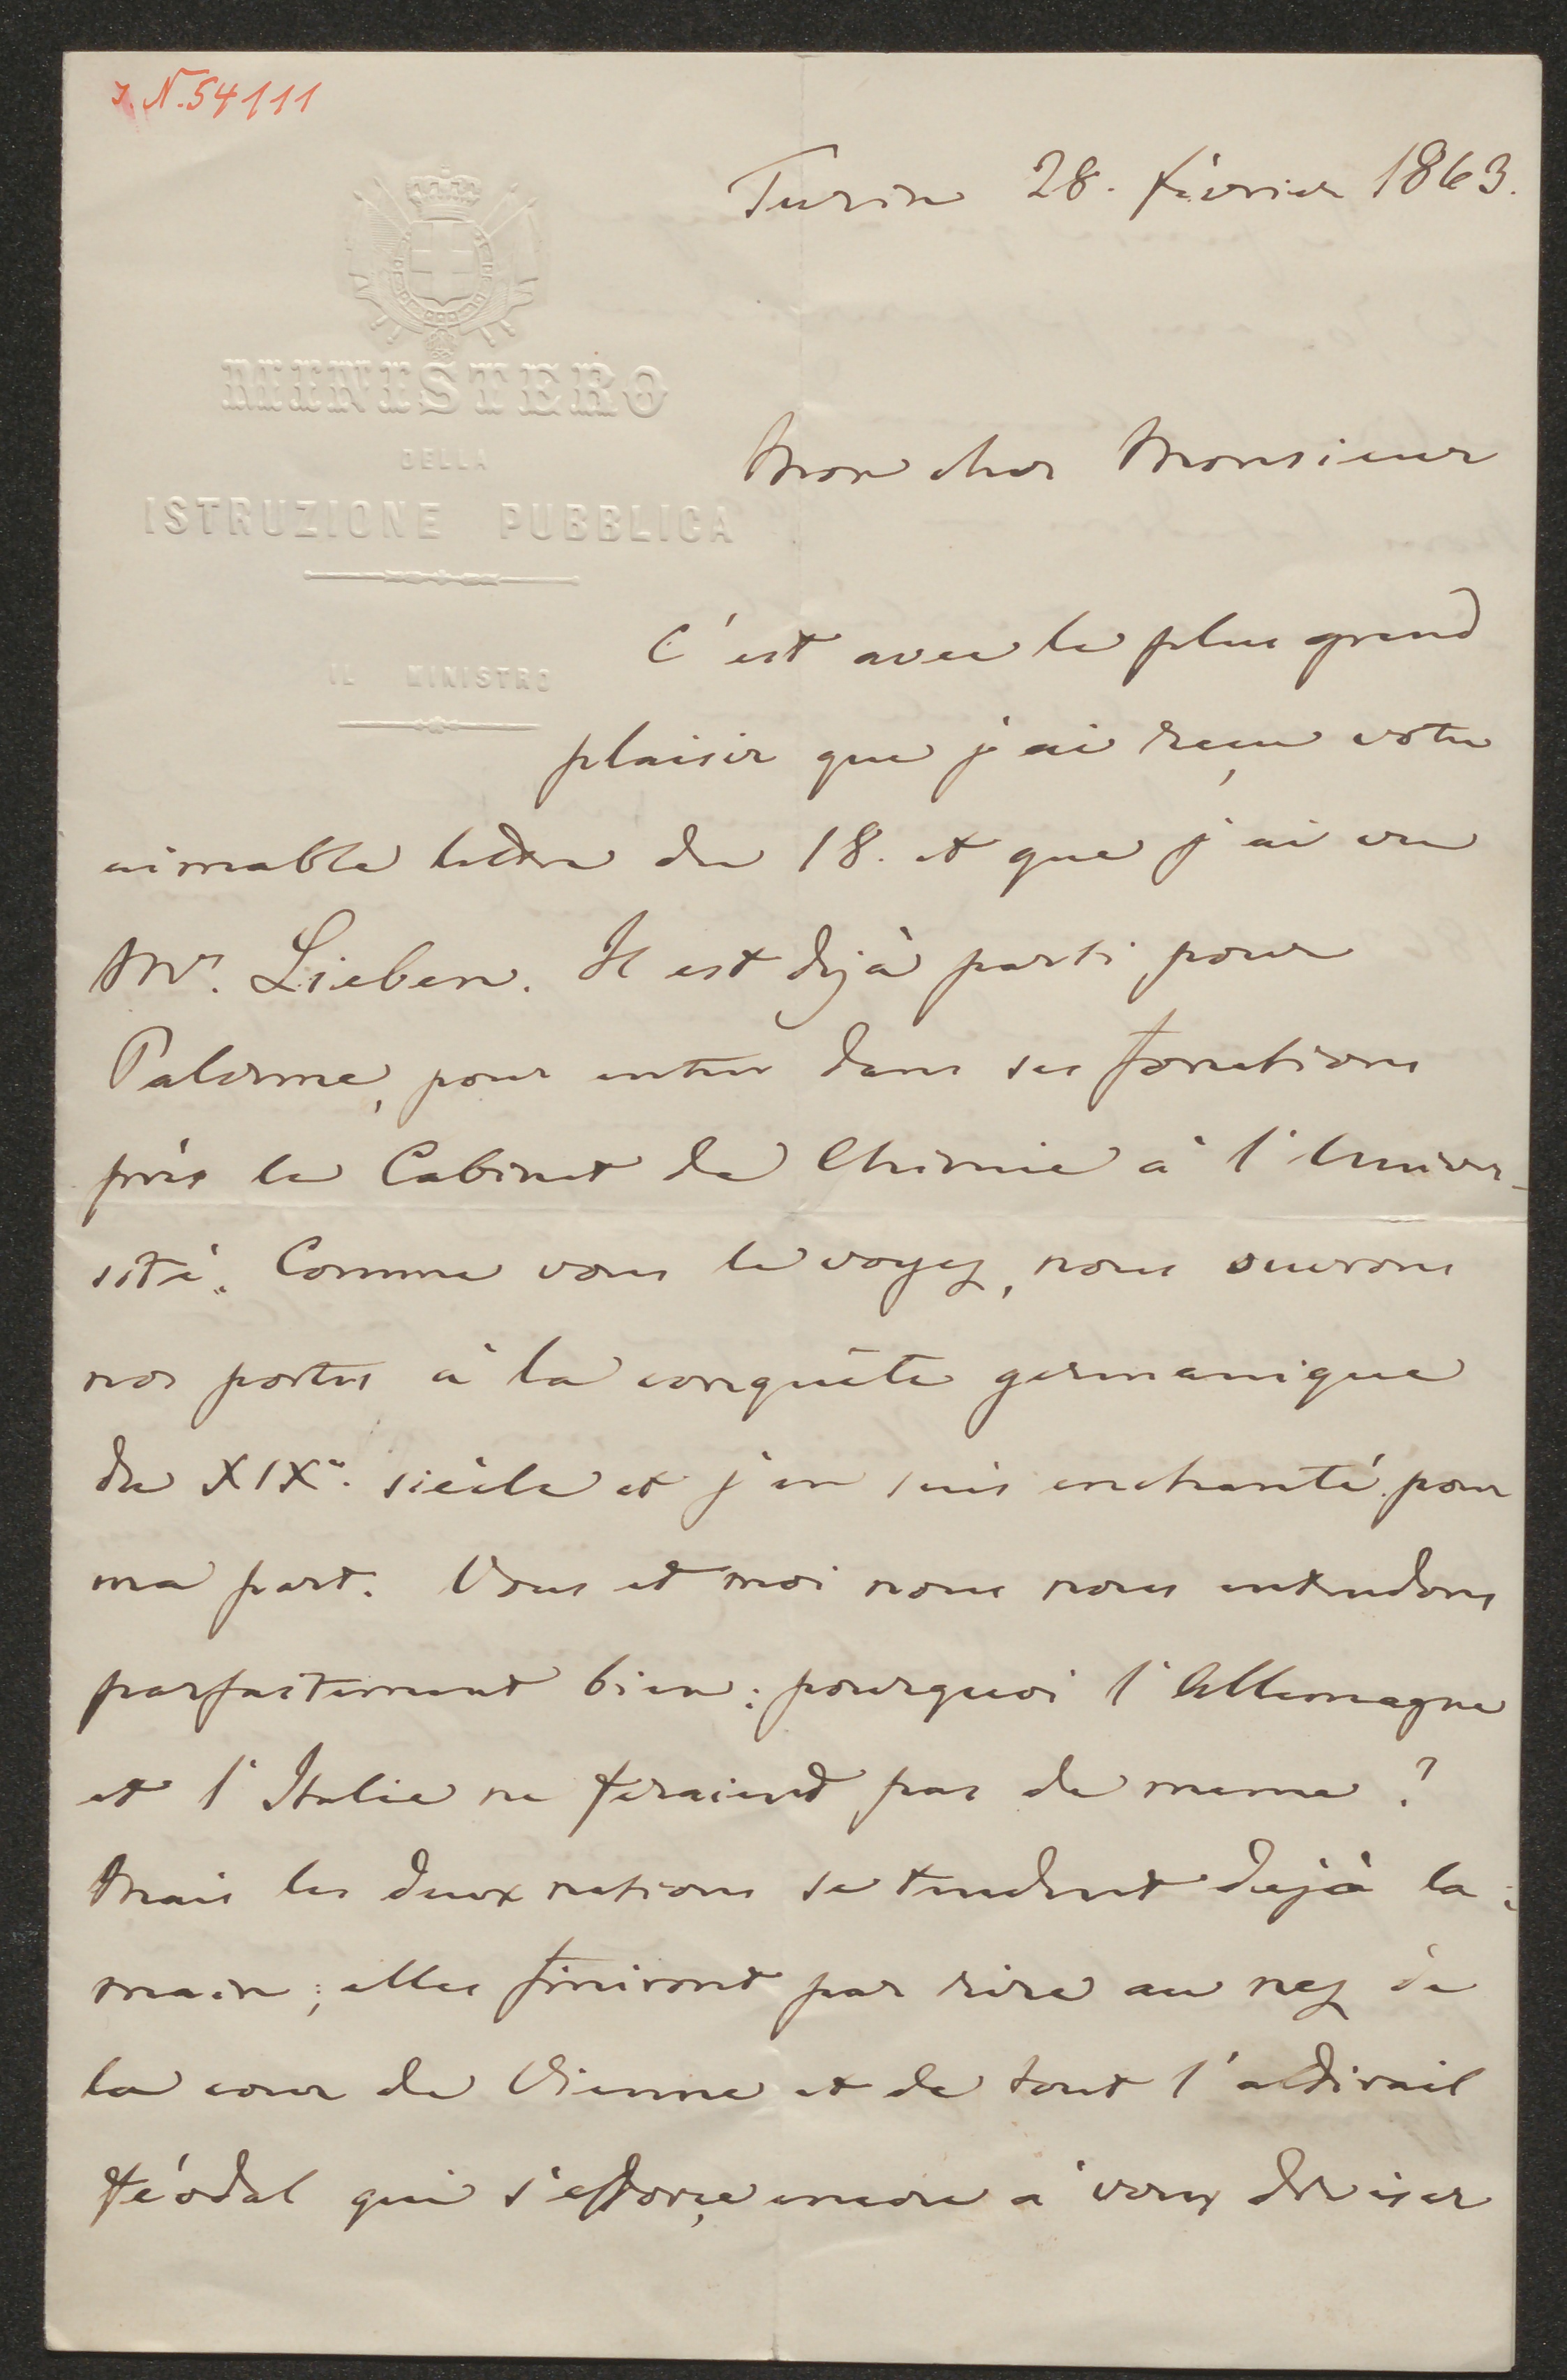 I. N. 54111
Turin 28. février 1863.
MINISTERO
DELLA
ISTRUZIONE PUBBLICA
IL MINISTRO
Mon cher Monsieur
C'est avec le plus grand
plaisir que j'ai reçu votre
aimable lettre du 18. et que j'ai vu
Mr. Lieben. Il est déjà parti pour
Palerme, pour entrer dans ses fonctions
près le Cabinet de Chimie à l'Univer-
sité. Comme vous le voyez, nous ouvrons
nos portes à la conquête germanique
du XIXe. siècle et j'en suis enchanté pour
ma part. Vous et moi nous nous entendons
parfaitement bien: pourquoi l'Allemagne
et l'Italie ne feraient pas de meme?
Mais les deux nations se tendent dejà la
main; elles finiront par rire au nez de
la cour de Vienne et de tout l'attirail
féodal qui s'efforçe encore à diviser